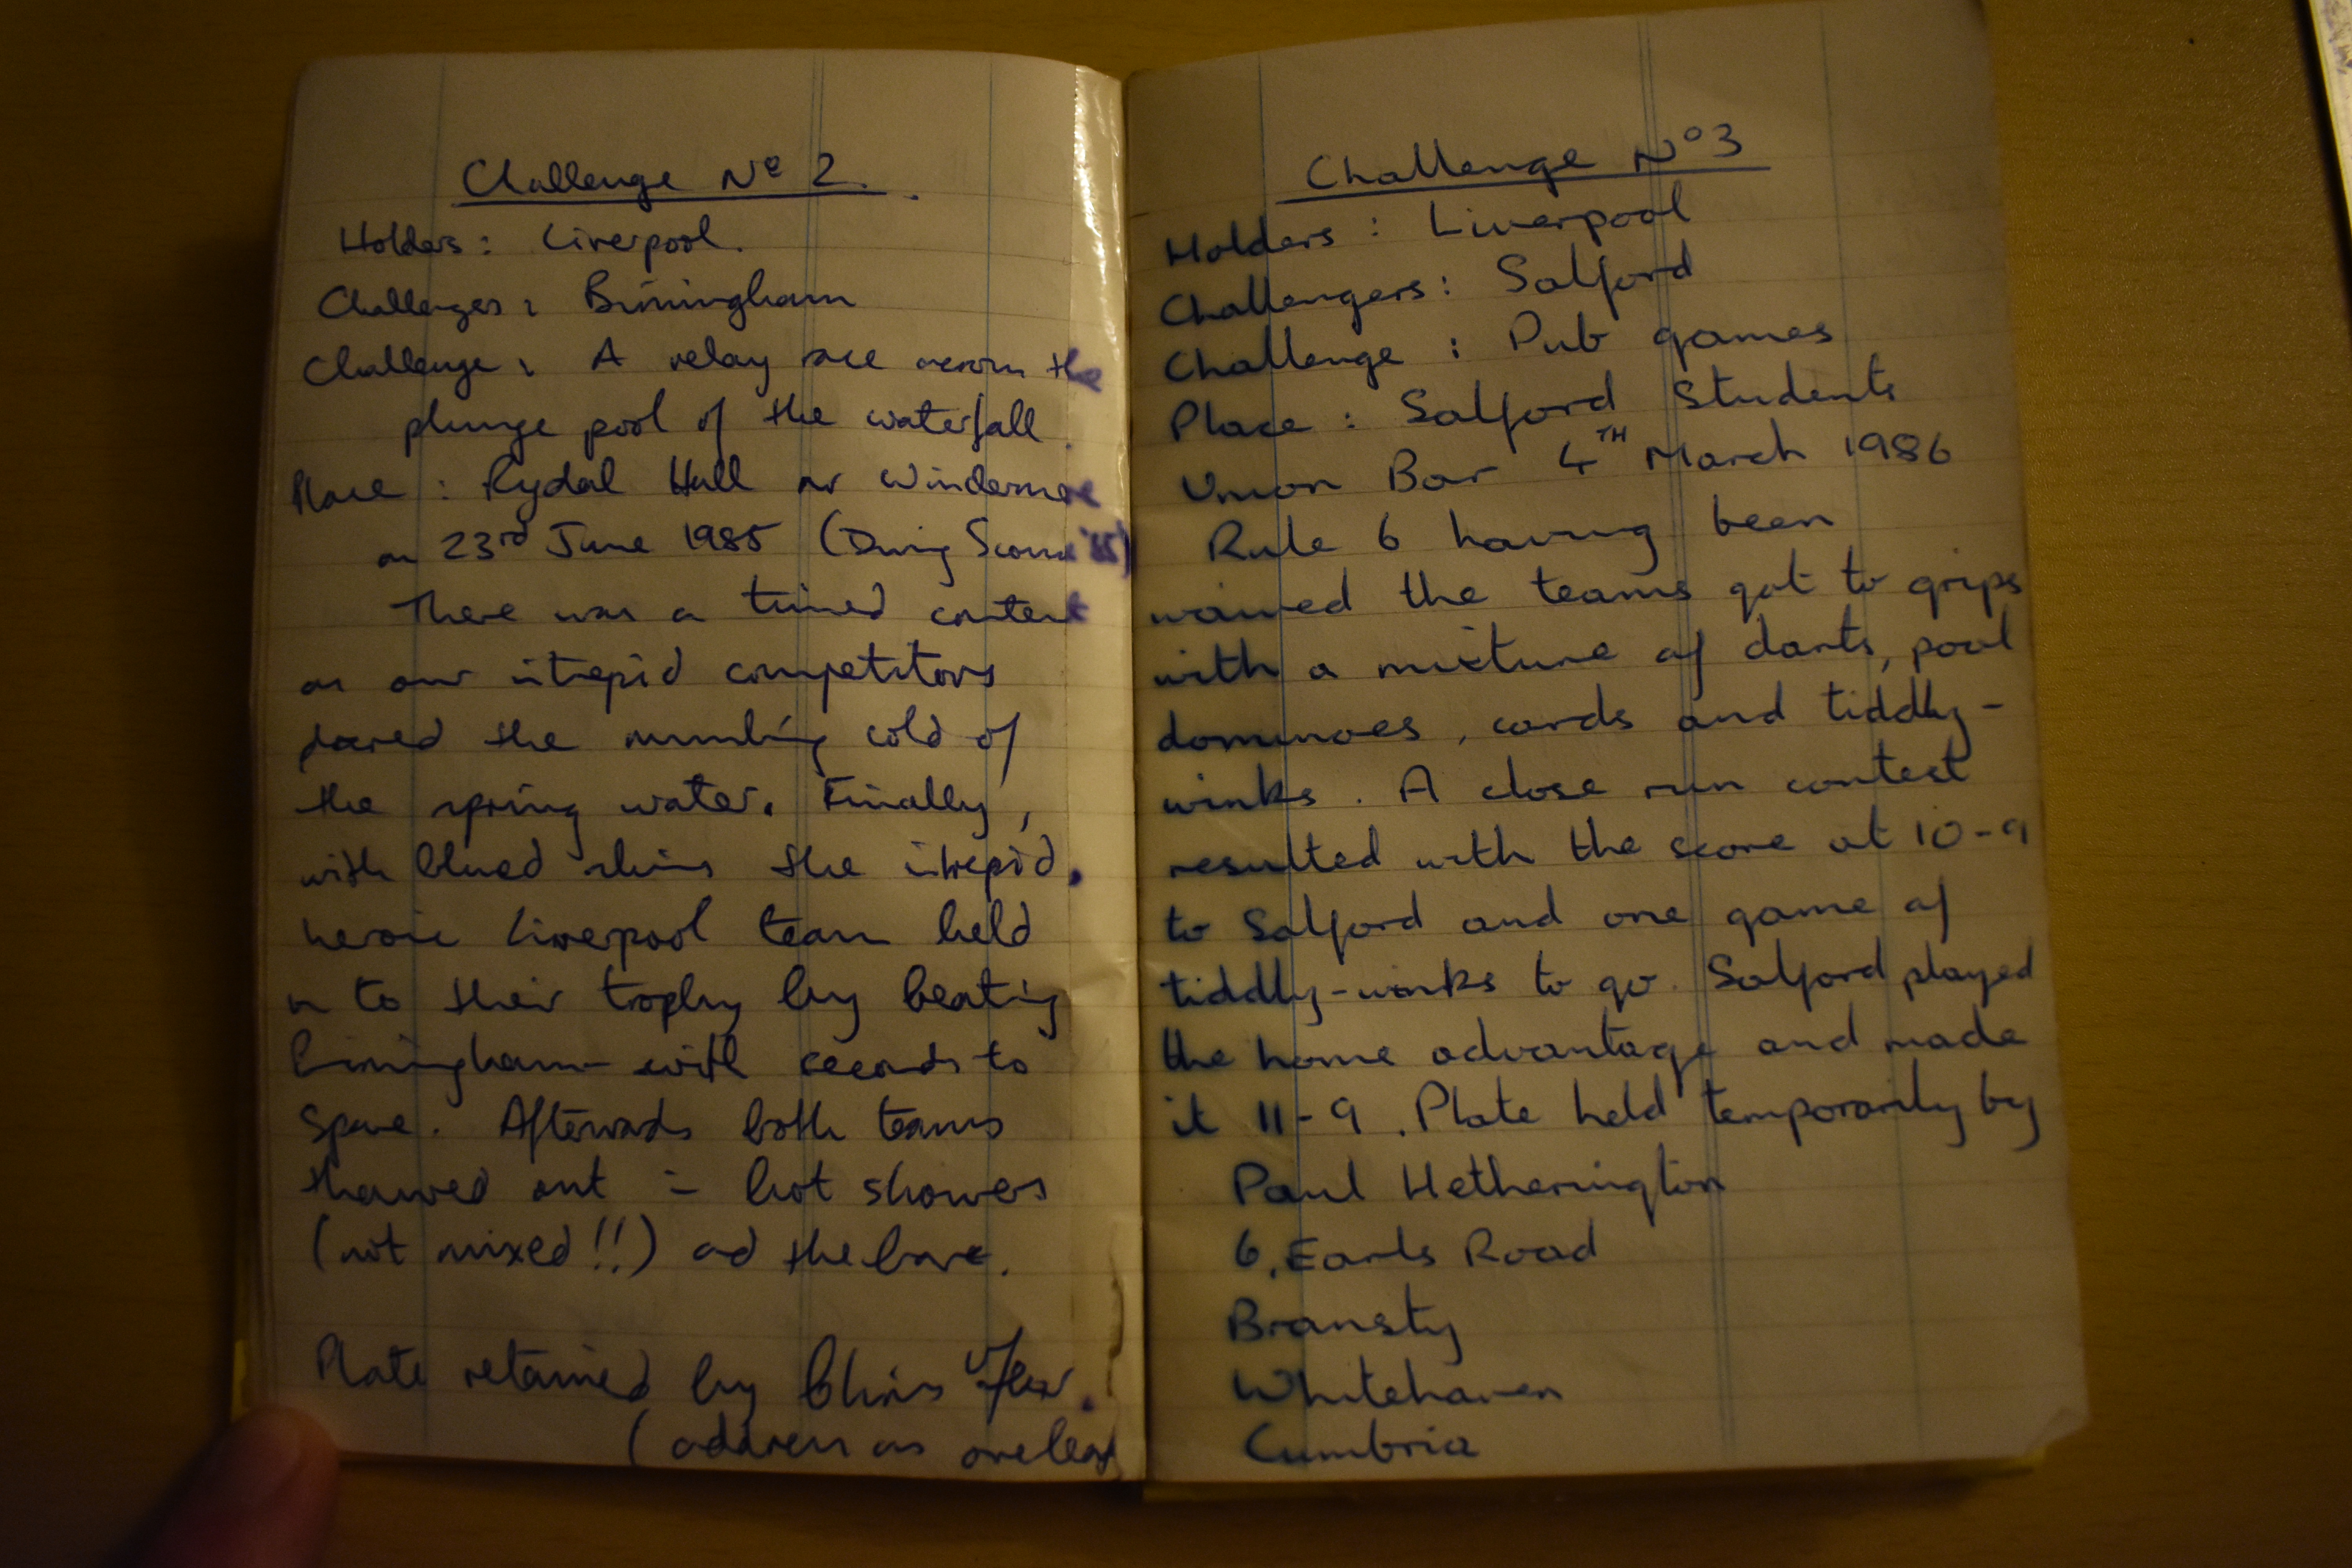 Challenge No 2.
Holders: Liverpool.
Challengers: Birmingham
Challenge: A relay race across the
plunge pool of the waterfall.
Place: Rydal Hall nr Windermere
on 23rd June 1985 (During Scone '85)
There was a timed contest
as our intrepid competitors
the numbing cold of
the spring water. Finally,
with blued skins the intrepid,
heroic Liverpool team held
on to their trophy by beating
Birmingham with seconds to
spare. Afterwards both teams
thawed out in hot showers
(not mixed!!) and the bar.
Plate retained by Chris
(address as overleaf
Challenge No 3
Holders: Liverpool
Challengers: Salford
Challenge: Pub games
Place: Salford Students
Union Bar 4TH March 1986
Rule 6 having been
waived the teams got to grips
with a mixture of darts, pool
dominoes, cards and tiddly-
winks. A close run contest
resulted with the score at 10-9
to Salford and one game of
tiddly-winks to go. Salford played
the home advantage and made
it 11-9. Plate held temporarily by
Paul Hetherington
6, Earls Road
Bransty
Whitehaven
Cumbria